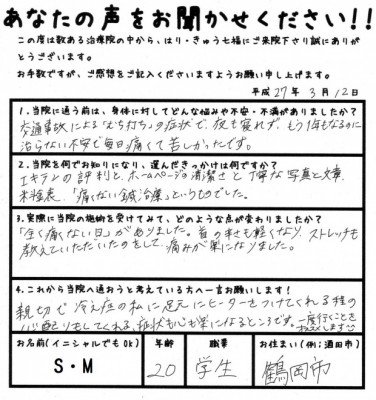 あなたの声をお聞かせください!!
この度は数ある治療院の中から、はり・きゅう七福にご来院下さり誠にありが
とうございます。
お手数ですが、ご感想をご記入くださいますようお願い申し上げます。
平成27年3月12日
1.当院に通う前は、身体に対してどんな悩みや不安・不満がありましたか?
交通事故による"むち打ち"の症状で、夜も寝れず、もう1年もなるのに
治らない不安で毎日痛くて苦しかったです。
2.当院を何でお知りになり、選んだきっかけは何ですか?
エキテンの評判と、ホームページの清潔せと丁寧な写真と文章、
料金表、「痛くない鍼治療」というものでした。
3.実際に当院の施術を受けてみて、どのような点が変わりましたか?
「全く痛くない日」がありました。首の事も軽くなり、ストレッチも
教えていただいたのをして、痛みが楽になりました。
4.これから当院へ通おうと考えている方へ一言お願いします!
親切で冷え症の私に足元にヒーターをつけてくれる程の
心配りもしてくれる、症状も心も楽になるところです。一度行くことを
おススメします
お名前(イニシャルでもOK)
年齢
職業
お住まい(例:酒田市)
S・M
20
学生
鶴岡市